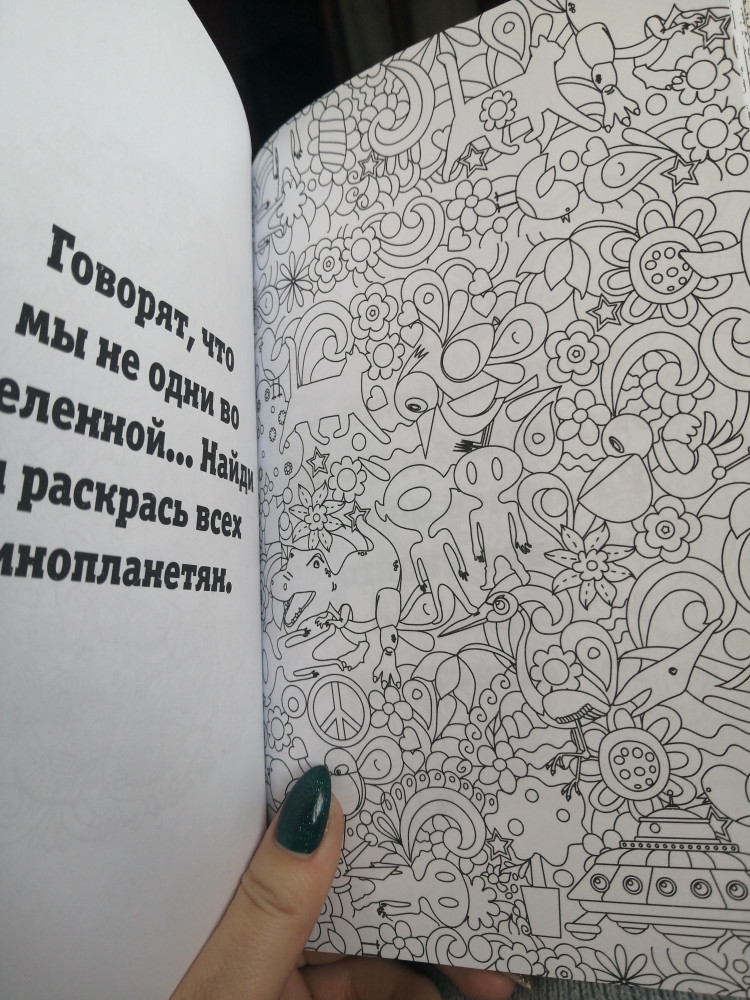 Говорят, что
мы не одни во
еленной... Найди
раскрась всех
инопланетян.